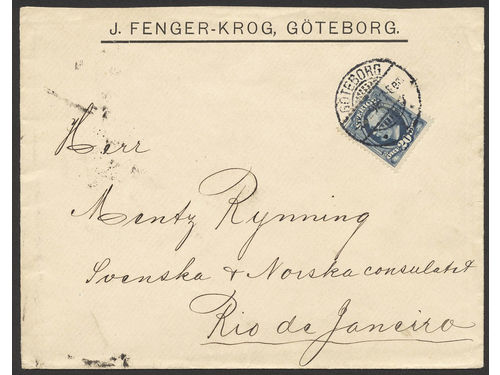 J. FENGER-KROG, GÖTEBORG.
GÖTEBORG
SVERIGE
20
Herr
Mentz Rynning
Svenska & Norska consulatet
Rio de Janeiro